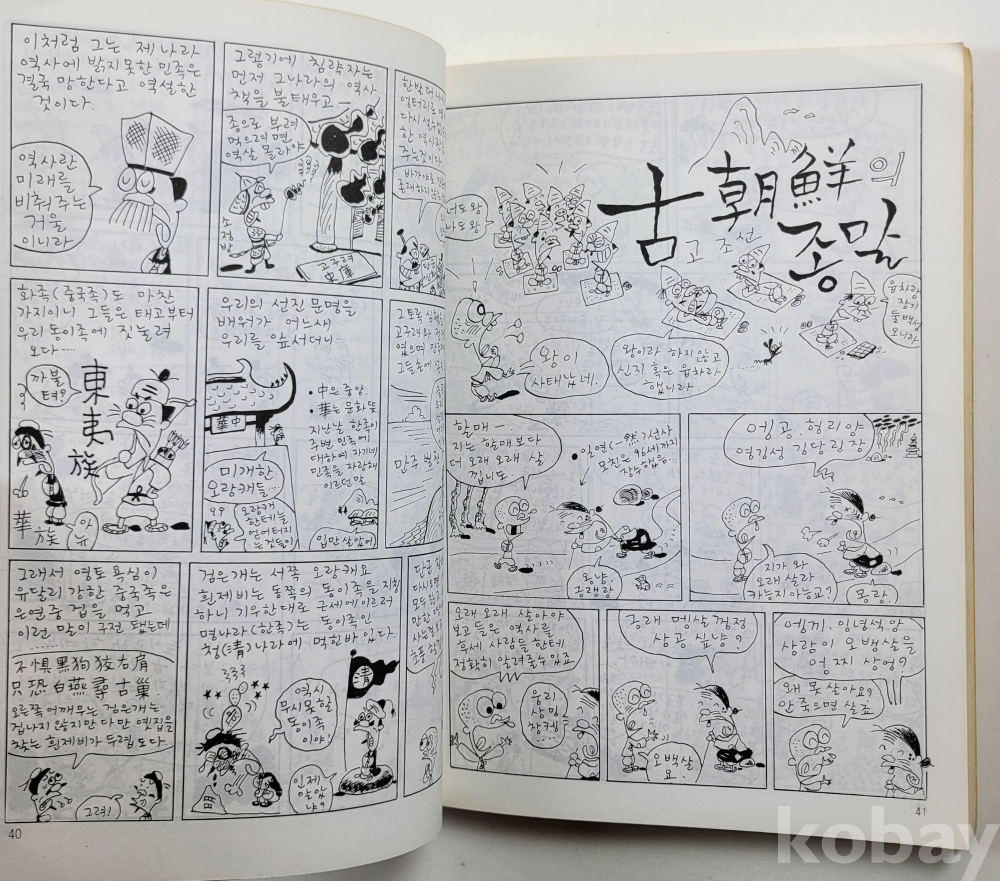 이처럼 그는 제 나라
역사에 밝지 못한 민족은
결국 망한다고 역설한
것이다.
역사란
미래를
비춰주는
거울
이니라
그렇기에 침략자는
먼저 그나라의 역사
책을 불태우고 ―
종으로 부려
먹으려면
역살 몰라야
소정방
고구려
史庫
한발 더 나
엉터리로
다시
한 역사
주는것이다
화족(중국족)도 마찬
가지이니 그들은 태고부터
우리 동이족에 짓눌려
오다……
까불
텨?
東夷族
華族
아유
우리의 선진 문명을
배워가 어느새
우리를 앞서더니…
華中
• 中은 중앙.
• 華는 문화뜻
지난날 한족이
주변 민족에
대하여 자기네
민족을 자랑해
이르던 말.
미개한
오랑캐들…
오랑캐
한테 늘
얻어터지
는 것들이
입만 살았어
그토록
고구려와
였으며
그들손에
만주 벌판
그래서 영토 욕심이
유달리 강한 중국족은
은연중 겁을 먹고
이런 말이 구전 됐는데
不懼黑狗狡右肩
只恐白燕尋古巢.
오른쪽 어깨무는 검은개는
겁나지 않지만 다만 옛집을
찾는 흰제비가 두렵도다.
그려!
검은개는 서쪽 오랑캐요
흰제비는 동쪽의 동이족을 지칭
하니 기우한대로 근세에 이르러
명나라(한족)는 동이족인
청(淸)나라에 먹힌바 있다.
역시
무시못할
동이족
이야!
淸
인제
알았
냐?
明
40
古朝鮮의
고 조선
종말
너도 왕
나도 왕
왕이
사태났네.
왕이라 하지 않고
신지 혹은 읍차라
했니라
읍차라
장기
둘백성
모니라
할매―.
지는 할매보다
더 오래 오래 살
낍니도
• 일연(一然)선사
모친은 96세까지
장수했음.
옹냥?
궁래랑
엥공. 형리양
영김성 강당링장
지가 와
오래 살라
카는지 아능교?
몽랑.
오래 오래 살아야
보고 들은 역사를
후세 사람들한테
정확히 알려줄수 있죠
웅리
상밍
창켕
궁래 멩살 껑정
상공 싶냥?
오백살
요.
엥끼. 잉녕석앙
상람이 오뱅삼을
어찌 상엉?
왜 못 살아요?
안 죽으면 살죠
41
kobay